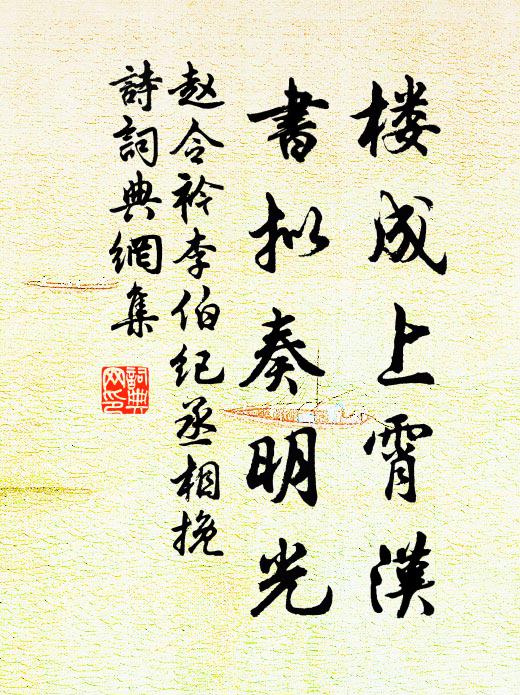 楼成上霄漢
書拟奏明光
赵令衿李伯纪丞相挽
詩詞典網集
詞典
网印